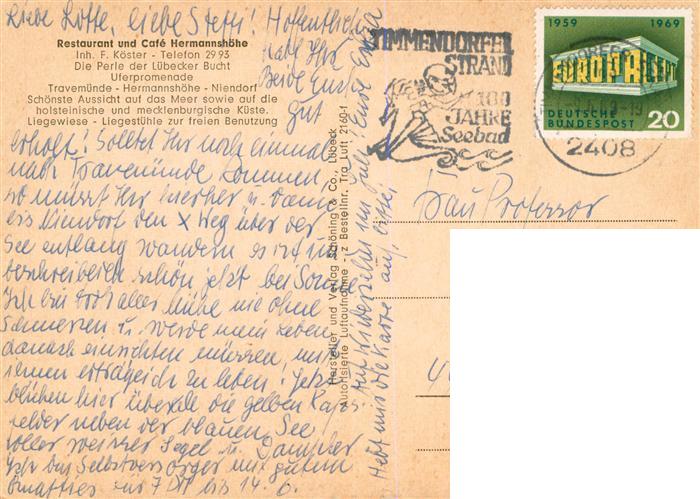 Liebe Lotte, liebe Steffi! Hoffentlich
habt Ihr
Beide Euch
gut
erholt! Solltet Ihr noch einmal
nach Travemünde kommen,
so müsst Ihr hierher u. dann
bis Niendorf den X Weg über der
See entlang wandern es ist un
beschreiblich schön jetzt bei Sonne
Ich bin trotz aller Mühe nie ohne
Schmerzen u. werde mein Leben
danach einrichten müssen, mit
ihnen erträglich zu leben! Jetzt
blühen hier überall die gelben Raps
felder neben der blauen See
voller weisser Segel u. Dampfer
Ich bin Selbstversorger mit gutem
bis 14. 6.
Auf Wiedersehen im Juli! Eure Erika
Hebt uns die Karte auf, bitte!
Restaurant und Café Hermannshöhe
Inh. F. Köster - Telefon 29 93
Die Perle der Lübecker Bucht
Uferpromenade
Travemünde - Hermannshöhe - Niendorf
Schönste Aussicht auf das Meer sowie auf die
holsteinische und mecklenburgische Küste.
Liegewiese - Liegestühle zur freien Benutzung
Hersteller und Verlag Schöning & Co., Lübeck
Autorisierte Luftaufnahme - z Bestellnr. Tra Luft 2160-f
TIMMENDORFER
STRAND
100
JAHRE
Seebad
2408
1959 1969
EUROPA CEPT
DEUTSCHE
BUNDESPOST 20
Frau Professor